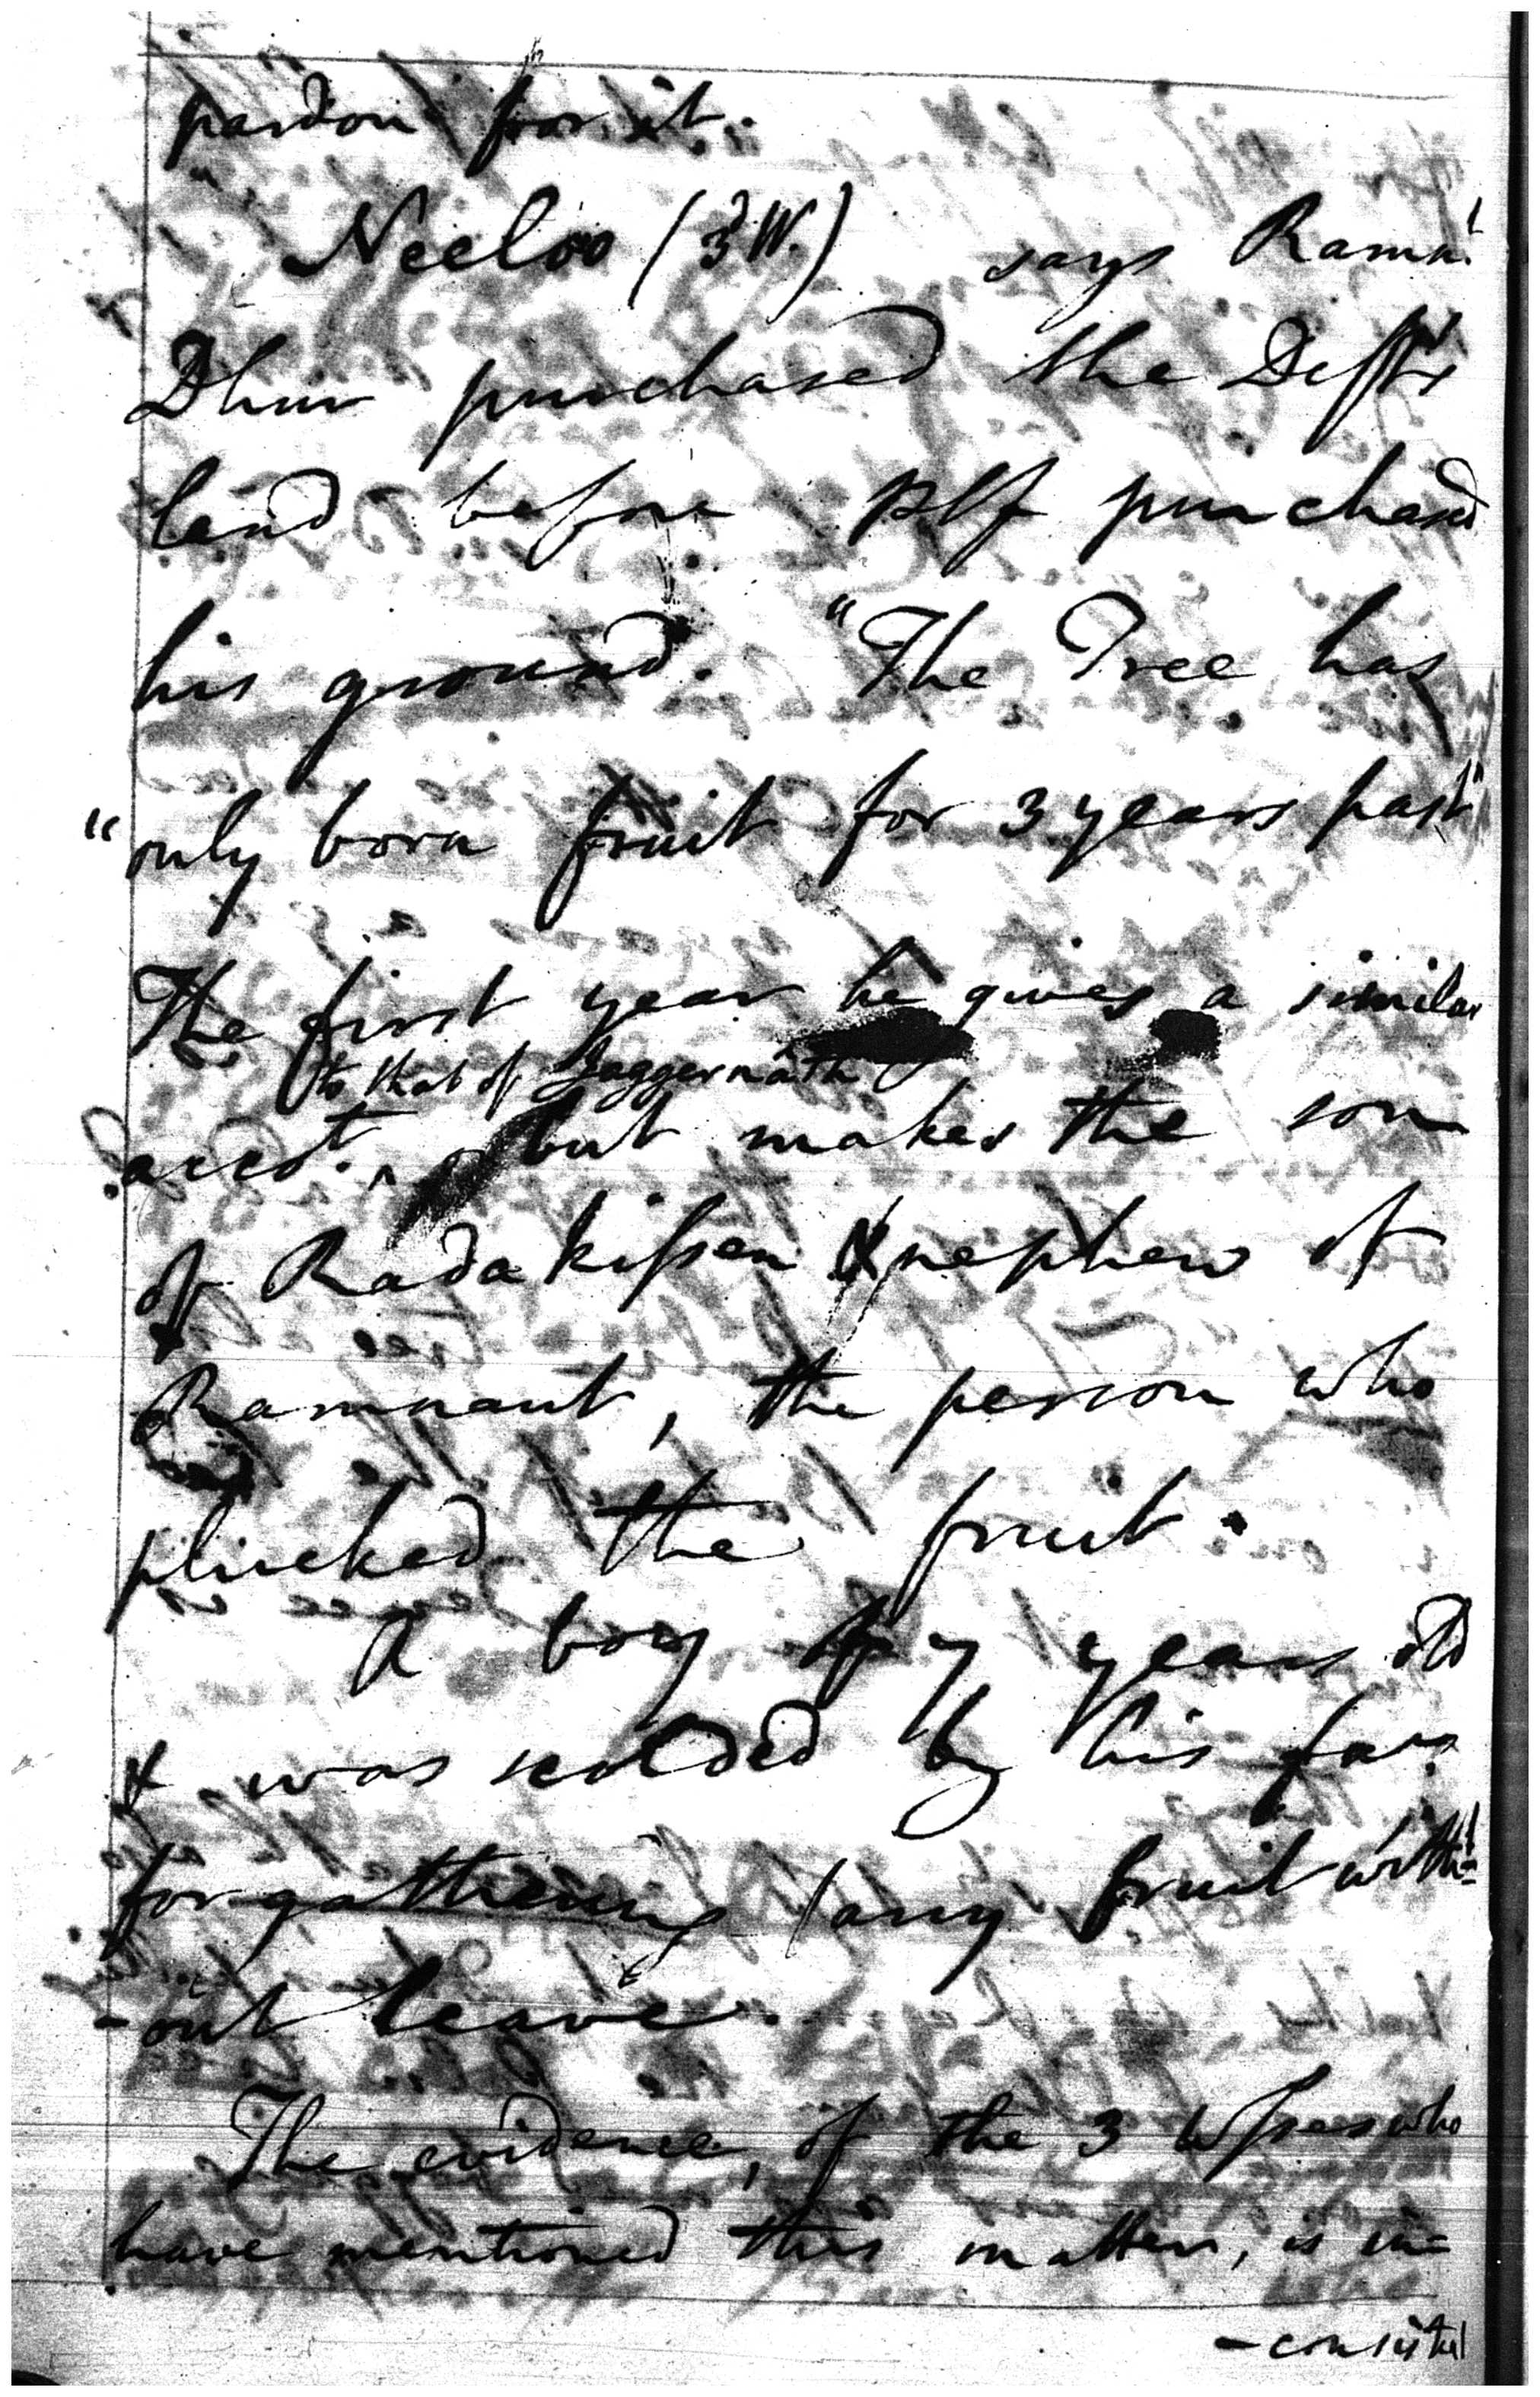 pardon for it.
Neeloo (3 W.) says Ramn.t
Dhur purchased the Deft's
land before Plf purchased
his ground. "The Tree has
"only born fruit for 3 years past"
The first year he gives a similar
to that of Jaggernath
acco.t but makes the son
of Radakissen & nephew of
Ramnaut, the person who
plucked the fruit.
A boy of 7 years old
& was scolded by his
for gathering any fruit with=
-out leave.
The evidence, of the 3 Wsses who
have mentioned this matter, is in=
-consistent